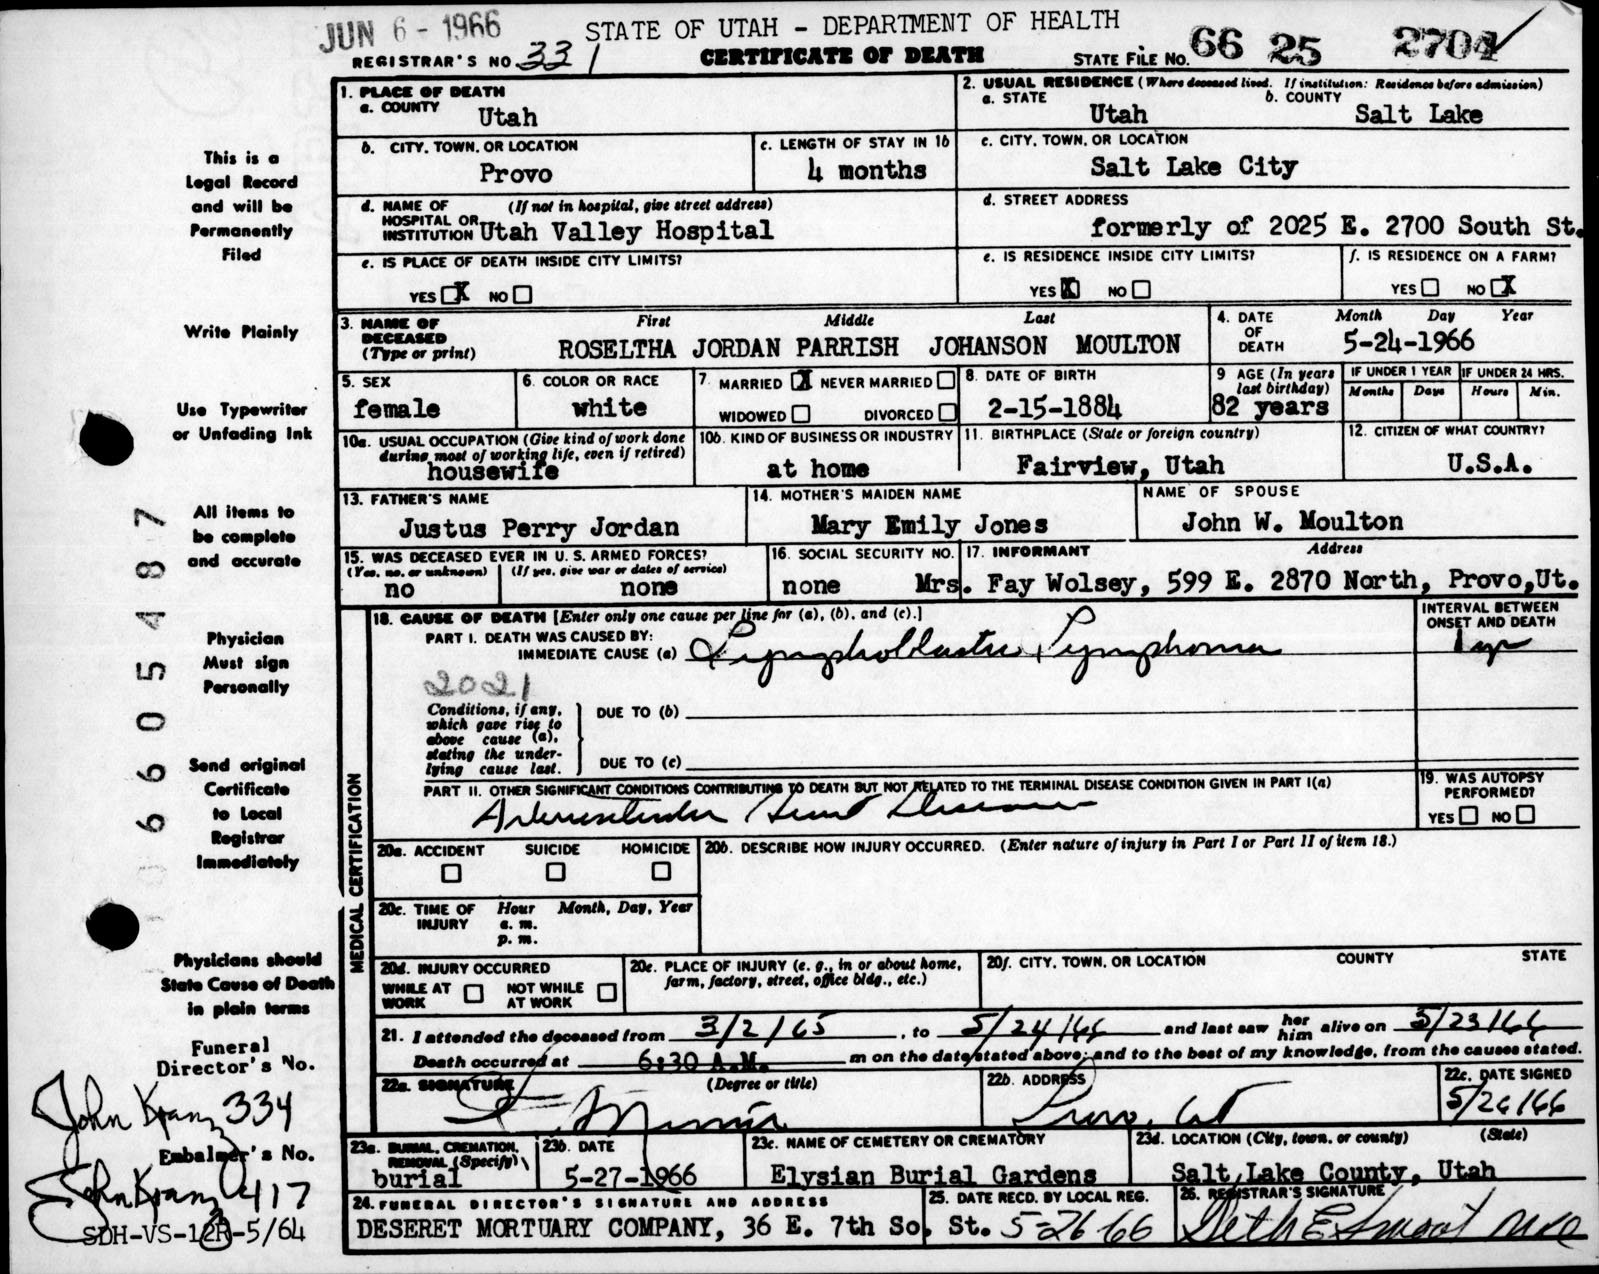 JUN 6 - 1966 STATE OF UTAH - DEPARTMENT OF HEALTH
REGISTRAR'S NO 331 CERTIFICATE OF DEATH STATE FILE NO. 66 25 2704
1. PLACE OF DEATH 2. USUAL RESIDENCE (Where deceased lived. If institution: Residence before admission)
a. COUNTY Utah a. STATE Utah b. COUNTY Salt Lake
b. CITY, TOWN, OR LOCATION Provo c. LENGTH OF STAY IN 1b 4 months c. CITY, TOWN, OR LOCATION Salt Lake City
d. NAME OF HOSPITAL OR INSTITUTION (If not in hospital, give street address) Utah Valley Hospital d. STREET ADDRESS formerly of 2025 E. 2700 South St.
e. IS PLACE OF DEATH INSIDE CITY LIMITS? e. IS RESIDENCE INSIDE CITY LIMITS? f. IS RESIDENCE ON A FARM?
YES X NO YES X NO YES NO X
3. NAME OF DECEASED (Type or print) First Middle Last 4. DATE OF DEATH Month Day Year
ROSELTHA JORDAN PARRISH JOHANSON MOULTON 5-24-1966
5. SEX female 6. COLOR OR RACE white 7. MARRIED X NEVER MARRIED WIDOWED DIVORCED 8. DATE OF BIRTH 2-15-1884 9 AGE (In years last birthday) 82 years IF UNDER 1 YEAR Months Days IF UNDER 24 HRS. Hours Min.
10a. USUAL OCCUPATION (Give kind of work done during most of working life, even if retired) housewife 10b. KIND OF BUSINESS OR INDUSTRY at home 11. BIRTHPLACE (State or foreign country) Fairview, Utah 12. CITIZEN OF WHAT COUNTRY? U.S.A.
13. FATHER'S NAME Justus Perry Jordan 14. MOTHER'S MAIDEN NAME Mary Emily Jones NAME OF SPOUSE John W. Moulton
15. WAS DECEASED EVER IN U. S. ARMED FORCES? (Yes, no, or unknown) no (If yes, give war or dates of service) none 16. SOCIAL SECURITY NO. none 17. INFORMANT Address Mrs. Fay Wolsey, 599 E. 2870 North, Provo,Ut.
MEDICAL CERTIFICATION
18. CAUSE OF DEATH [Enter only one cause per line for (a), (b), and (c).] INTERVAL BETWEEN ONSET AND DEATH
PART I. DEATH WAS CAUSED BY:
IMMEDIATE CAUSE (a) Lymphoblastic Lymphoma 1 yr
2021
Conditions, if any, which gave rise to above cause (a), stating the underlying cause last.
DUE TO (b)
DUE TO (c)
PART II. OTHER SIGNIFICANT CONDITIONS CONTRIBUTING TO DEATH BUT NOT RELATED TO THE TERMINAL DISEASE CONDITION GIVEN IN PART I(a) 19. WAS AUTOPSY PERFORMED?
Heart Disease YES NO
20a. ACCIDENT SUICIDE HOMICIDE 20b. DESCRIBE HOW INJURY OCCURRED. (Enter nature of injury in Part I or Part II of item 18.)
20c. TIME OF INJURY Hour a. m. p. m. Month, Day, Year
20d. INJURY OCCURRED WHILE AT WORK NOT WHILE AT WORK 20e. PLACE OF INJURY (e. g., in or about home, farm, factory, street, office bldg., etc.) 20f. CITY, TOWN, OR LOCATION COUNTY STATE
21. I attended the deceased from 3/2/65, to 5/24/66 and last saw her him alive on 5/23/66
Death occurred at 6:30 A.M. m on the date stated above; and to the best of my knowledge, from the causes stated.
22a. SIGNATURE (Degree or title) 22b. ADDRESS Provo, Ut 22c. DATE SIGNED 5/26/66
23a. BURIAL, CREMATION, REMOVAL (Specify) burial 23b. DATE 5-27-1966 23c. NAME OF CEMETERY OR CREMATORY Elysian Burial Gardens 23d. LOCATION (City, town, or county) (State) Salt Lake County, Utah
24. FUNERAL DIRECTOR'S SIGNATURE AND ADDRESS 25. DATE RECD. BY LOCAL REG. 26. REGISTRAR'S SIGNATURE
DESERET MORTUARY COMPANY, 36 E. 7th So. St. 5-26 66 Seth E Smoot
This is a
Legal Record
and will be
Permanently
Filed
Write Plainly
Use Typewriter
or Unfading Ink
All items to
be complete
and accurate
Physician
Must sign
Personally
Send original
Certificate
to Local
Registrar
Immediately
Physicians should
State Cause of Death
in plain terms
Funeral
Director's No.
John Kranz 334
Embalmer's No.
John Kranz 417
SDH-VS-12R-5/64
0 6 6 0 5 4 8 7